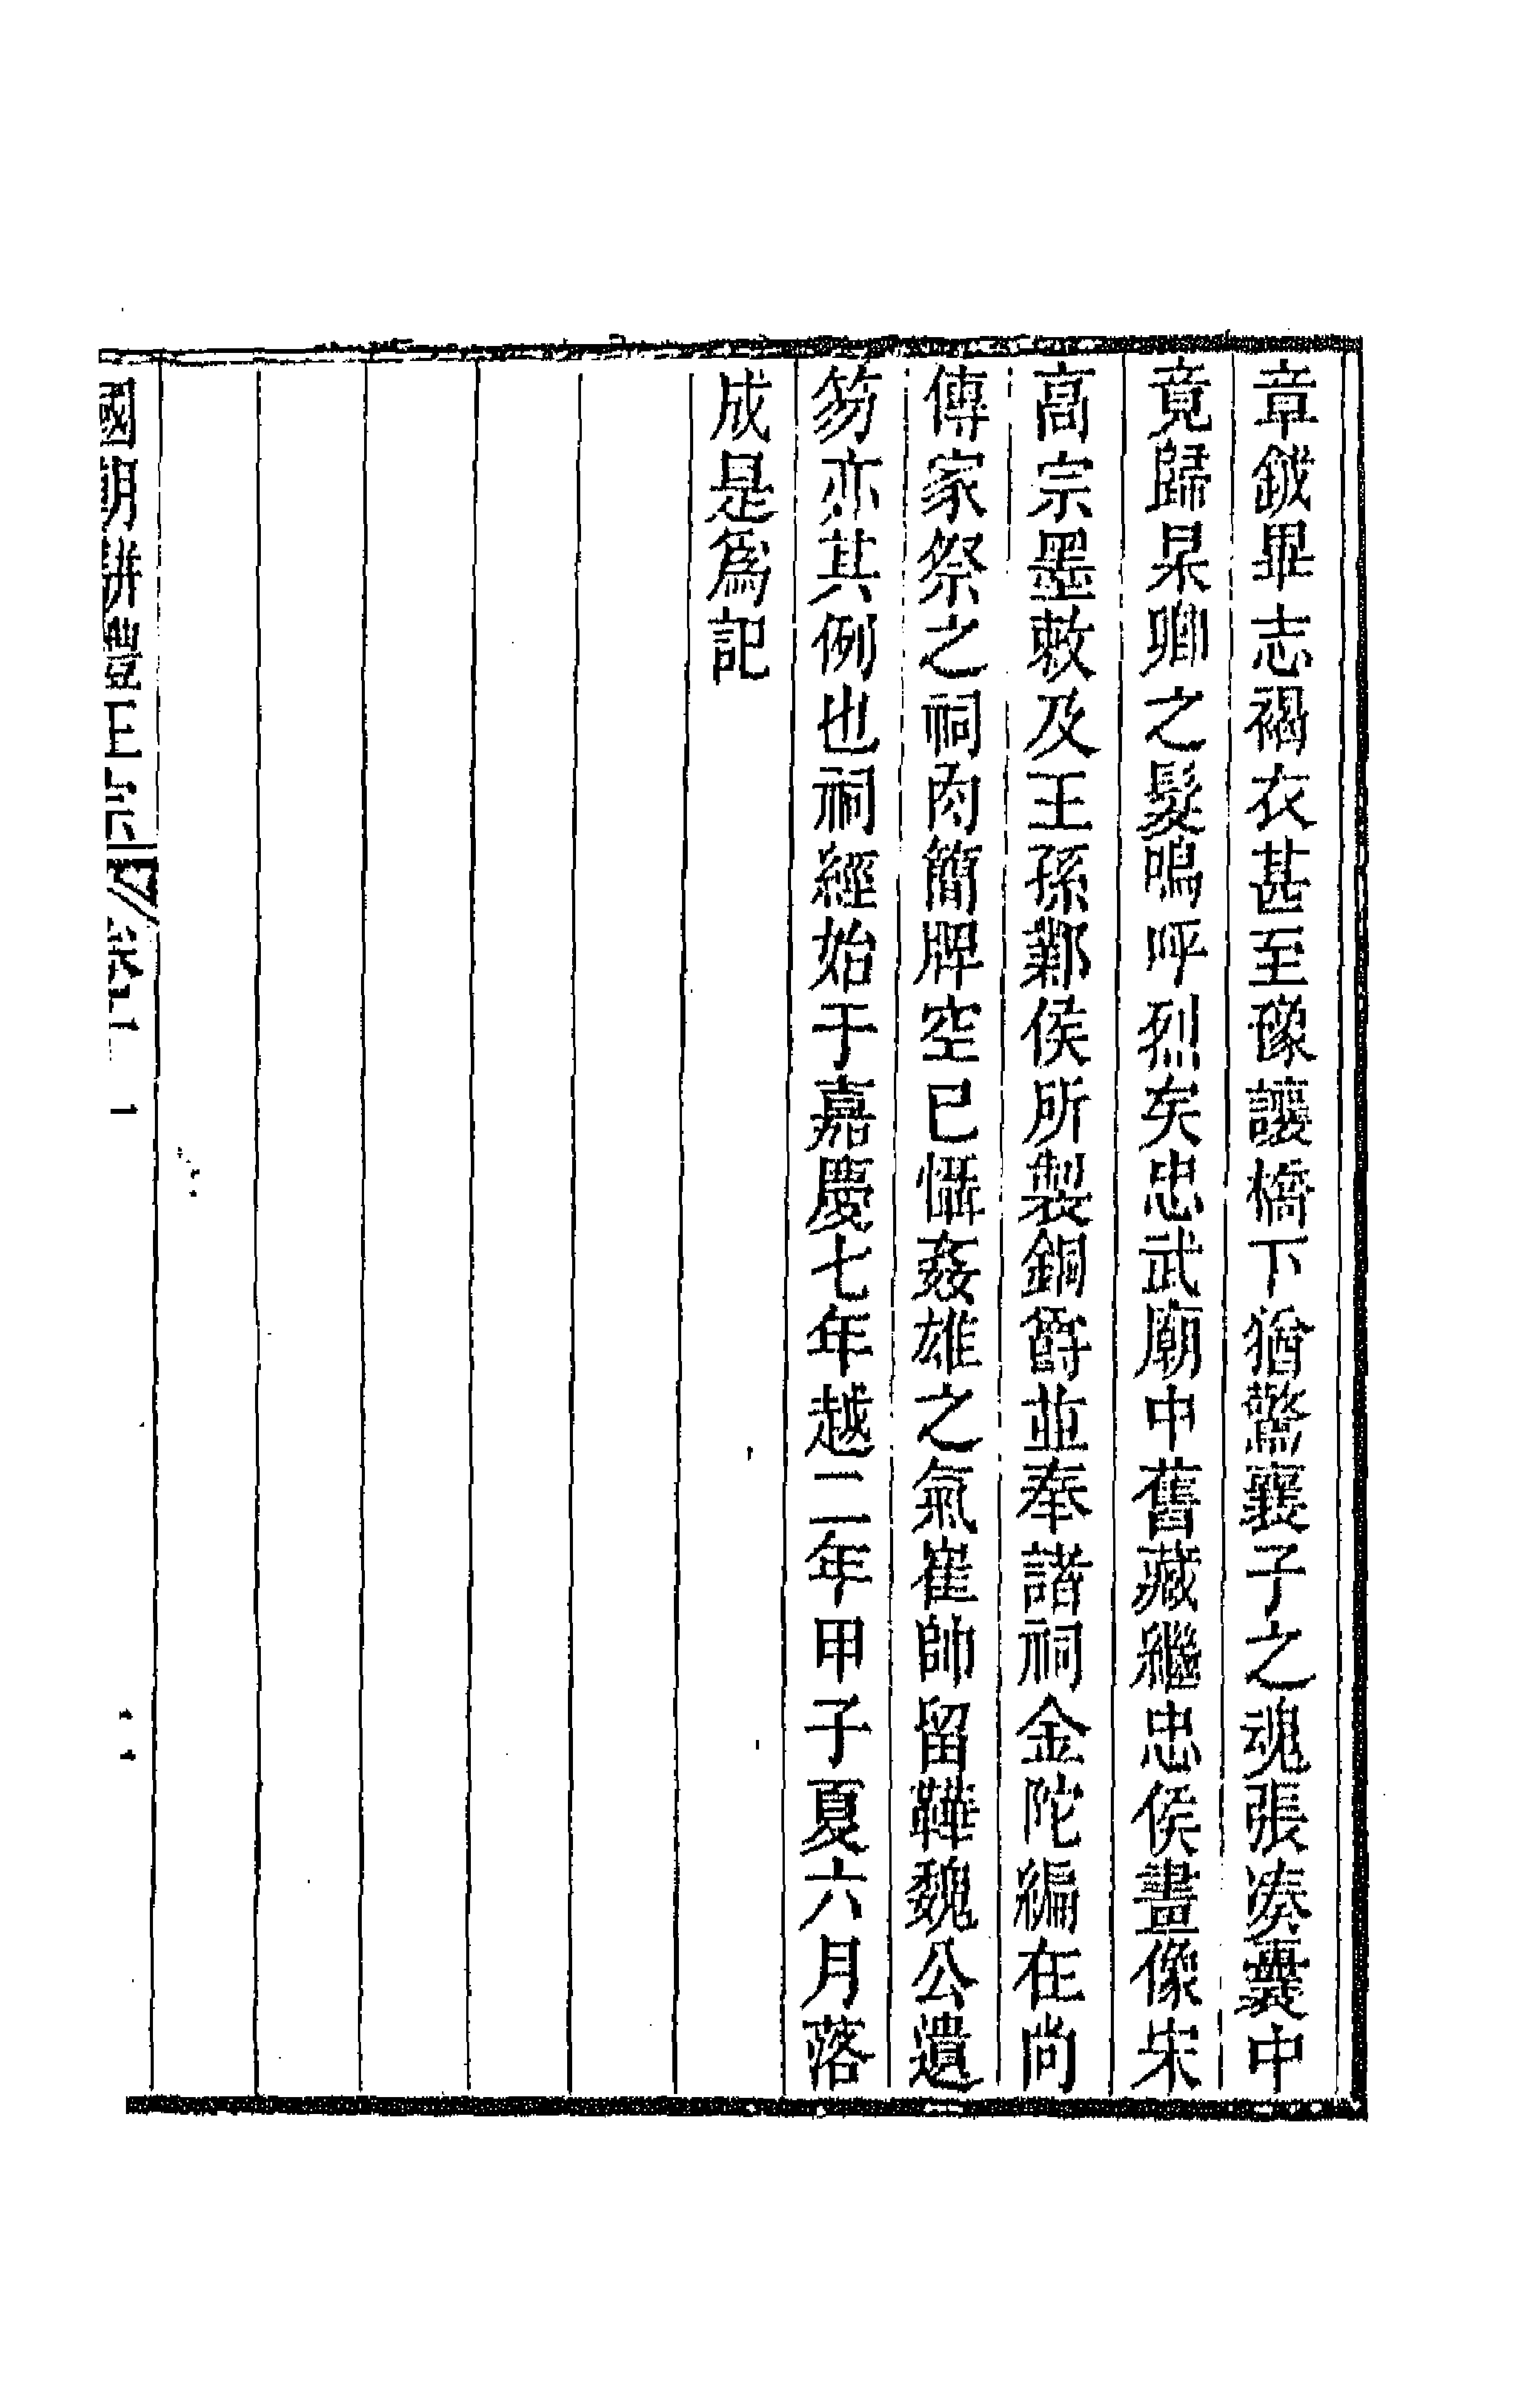 章鉞畢志褐衣甚至豫讓橋下猶驚襄子之魂張湊囊中
竟歸杲卿之髮嗚呼烈矣忠武廟中舊藏繼忠侯畫像宋
高宗墨敕及王孫鄴侯所製銅爵並奉諸祠金陀編在尚
傳家祭之祠肉簡牌空已懾姦雄之氣崔帥留鞾魏公遺
笏亦其例也祠經始于嘉慶七年越二年甲子夏六月落
成是為記
國朝駢體正宗 卷十一